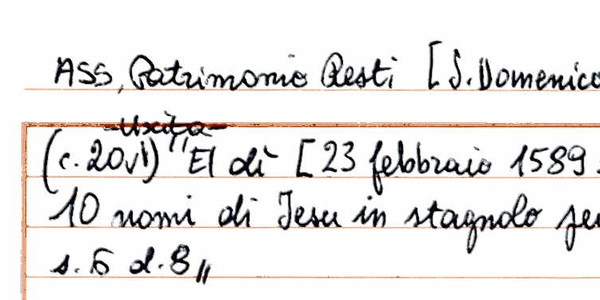 ASS, Patrimonio Resti [S. Domenico
Uscita
(c. 20v) "El dì [23 febbraio 1589
10 nomi di Jesu in stagnolo
s. 6 d. 8"